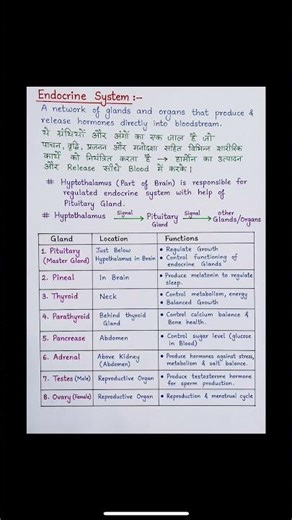 Endocrine System :-
A network of glands and organs that produce &
release hormones directly into bloodstream.
ये ग्रंथियों और अंगों का एक जाल है जो
पाचन, वृद्धि, प्रजनन और मनोदशा सहित विभिन्न शारीरिक
कार्यों को नियंत्रित करता है → हार्मोन का उत्पादन
और Release सीधे Blood में करके।
# Hypthothalamus (Part of Brain) is responsible for
regulated endocrine system with help of
Pituitary Gland.
# Hypthothalamus Signal → Pituitary Gland Signal → other Glands/Organs
Gland Location Functions
1. Pituitary (Master Gland) Just Below Hypothalamus in Brain • Regulate Growth • Control functioning of endocrine Glands
2. Pineal In Brain • Produce melatonin to regulate sleep.
3. Thyroid Neck • Control metabolism, energy • Balanced Growth
4. Parathyroid Behind thyroid Gland • Control calcium balance & Bone health.
5. Pancrease Abdomen • Control sugar level (glucose in Blood)
6. Adrenal Above Kidney (Abdomen) • Produce hormones against stress, metabolism & salt balance.
7. Testes (Male) Reproductive Organ • Produce testosterone hormone for sperm production.
8. Ovary (Female) Reproductive Organ • Reproduction & menstrual cycle